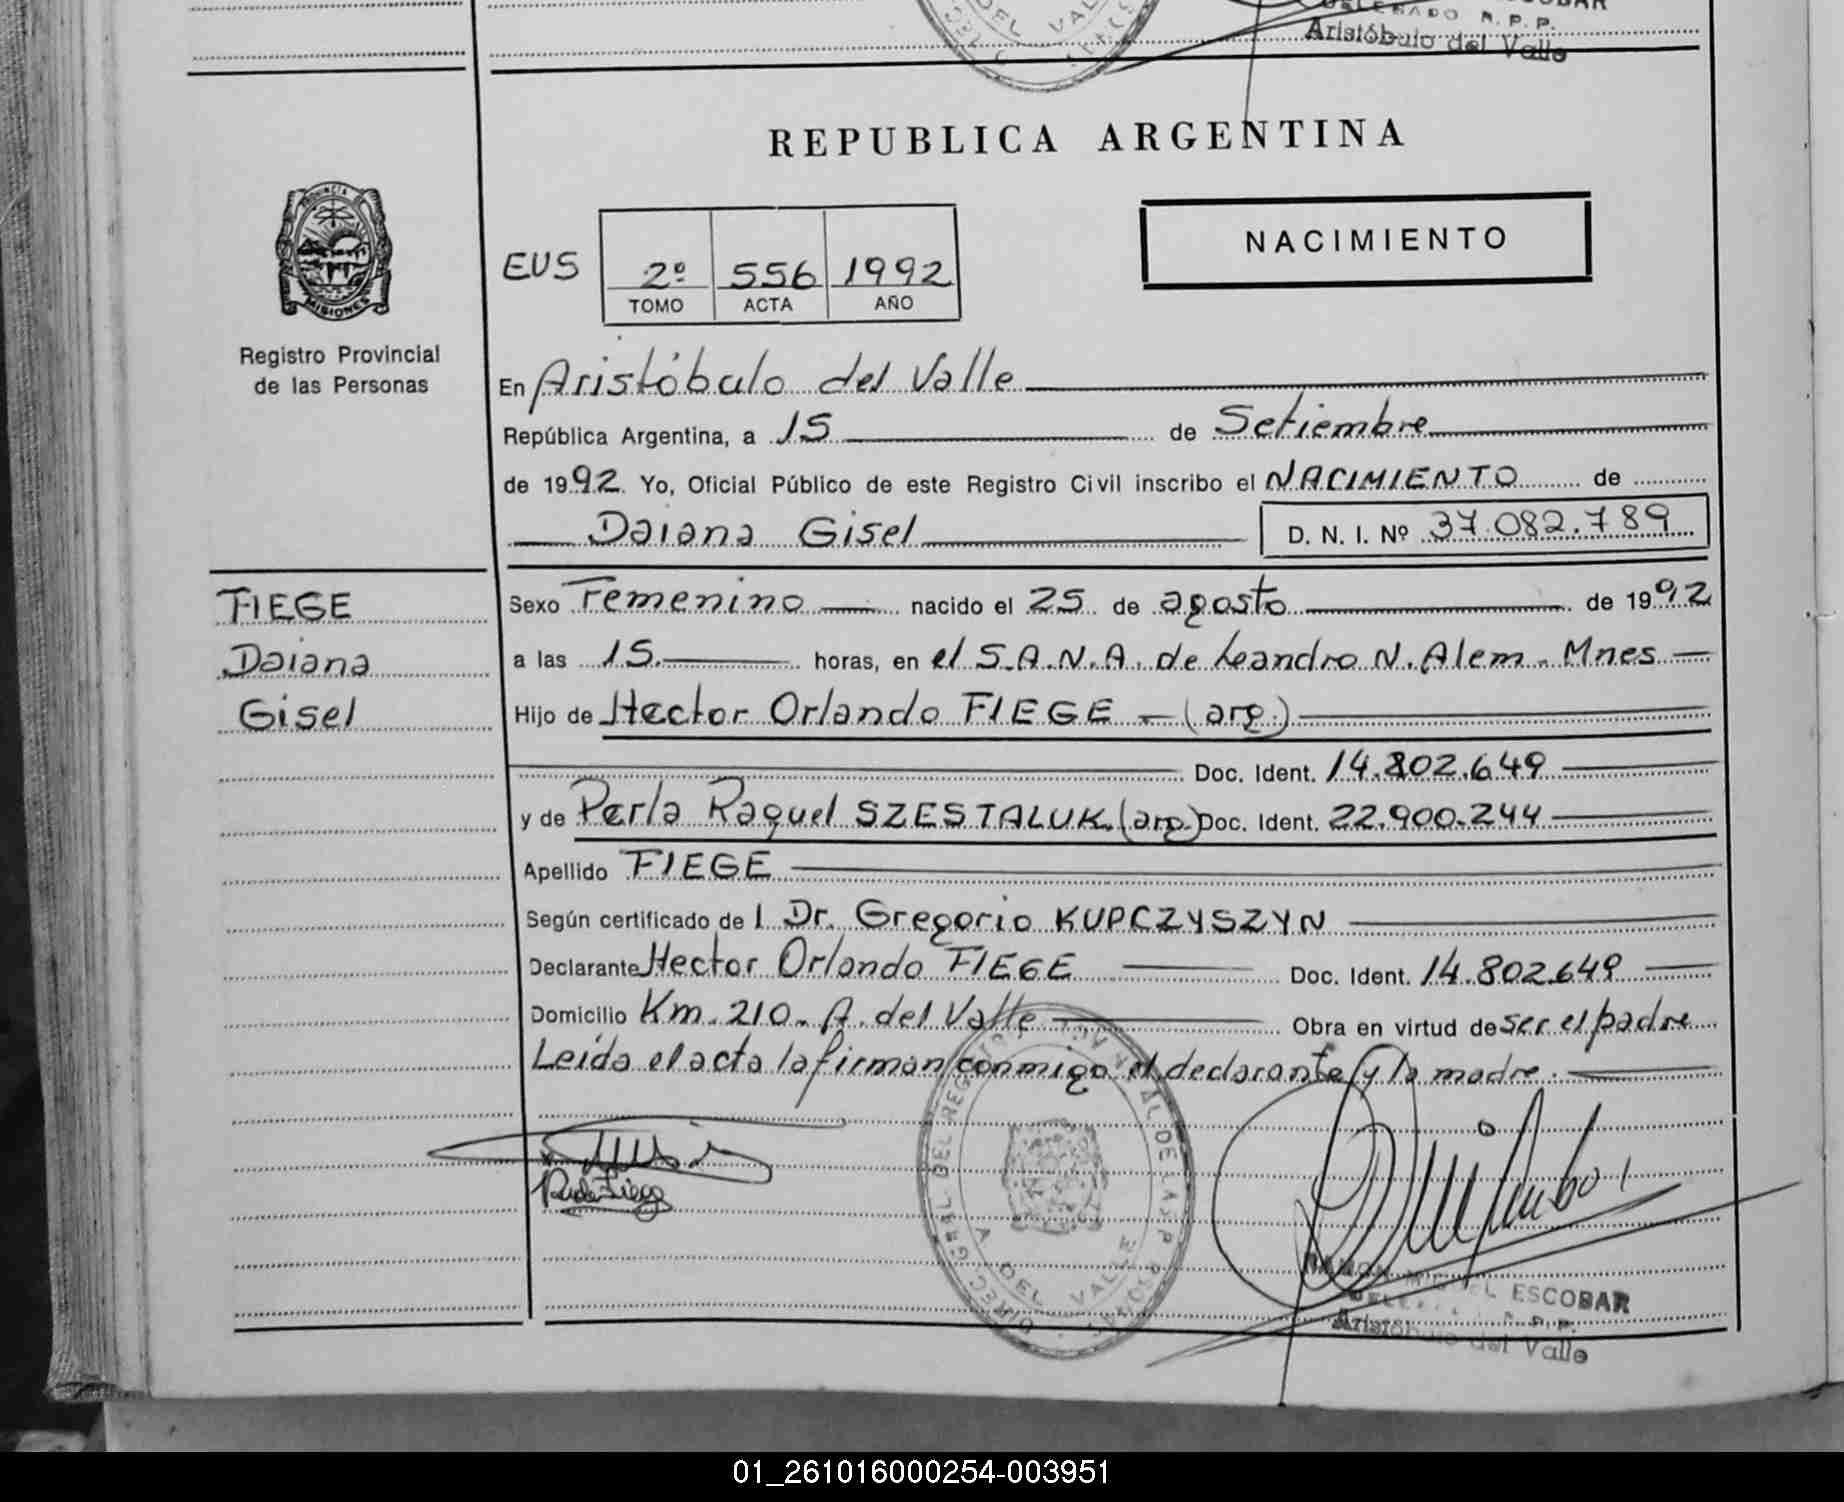 ESCOBAR
DELEGADO R.P.P.
Aristóbulo del Valle
DEL VALLE
REPUBLICA ARGENTINA
PROVINCIA
MISIONES
Registro Provincial
de las Personas
EUS
2º 556 1992
TOMO ACTA AÑO
NACIMIENTO
En Aristóbulo del Valle
República Argentina, a 15 de Setiembre
de 1992. Yo, Oficial Público de este Registro Civil inscribo el NACIMIENTO de
Daiana Gisel D. N. I. Nº 37.082.789
FIEGE
Daiana
Gisel
Sexo Femenino nacido el 25 de agosto de 1992
a las 15. horas, en el S.A.N.A. de Leandro N. Alem. Mnes
Hijo de Hector Orlando FIEGE - (arg.)
Doc. Ident. 14.802.649
y de Perla Raquel SZESTALUK. (arg.) Doc. Ident. 22.900.244
Apellido FIEGE
Según certificado de l Dr. Gregorio KUPCZYSZYN
Declarante Hector Orlando FIEGE Doc. Ident. 14.802.649
Domicilio Km. 210. A. del Valle Obra en virtud de ser el padre
Leída el acta la firman conmigo el declarante y la madre.
A. DEL VALLE
RAMON MIGUEL ESCOBAR
DELEGADO R.P.P.
Aristóbulo del Valle
01_261016000254-003951